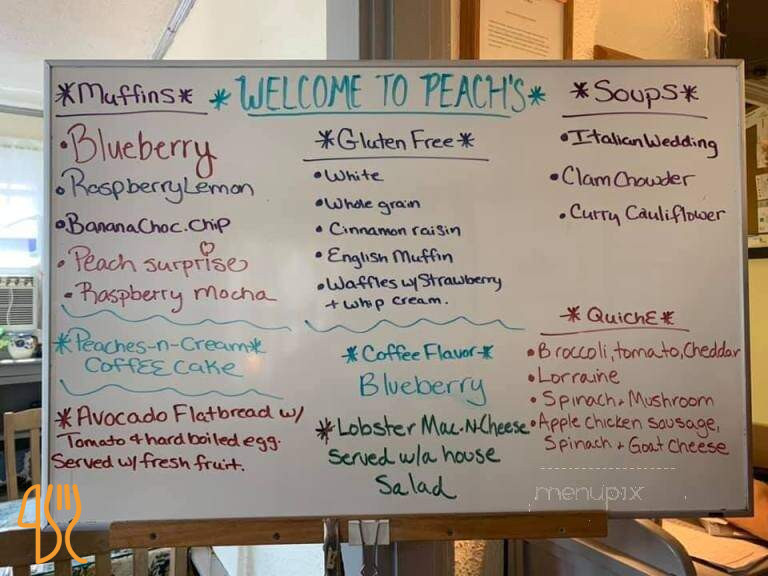 *WELCOME TO PEACH'S*
*Muffins*
•Blueberry
•RaspberryLemon
•BananaChoc.chip
•Peach surprise
•Raspberry mocha
*Peaches-n-Cream*
Coffee Cake
*Avocado Flatbread w/
Tomato + hard boiled egg.
Served w/ fresh fruit.
*Gluten Free*
•White
•Whole grain
•Cinnamon raisin
•English Muffin
•Waffles w/Strawberry
+ whip cream.
*Coffee Flavor*
Blueberry
*Lobster Mac-N-Cheese
Served w/a house
Salad
*Soups*
•Italian Wedding
•Clam Chowder
•Curry Cauliflower
*QuichE*
•Broccoli, tomato, Cheddar
•Lorraine
•Spinach + Mushroom
•Apple chicken sausage,
Spinach + Goat Cheese
menupix